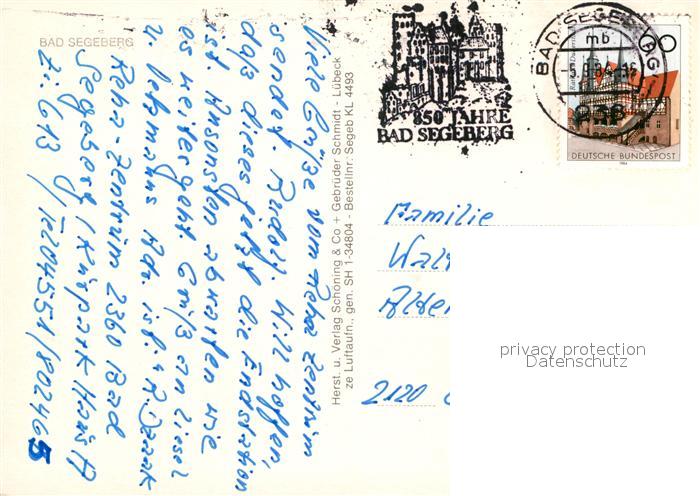 BAD SEGEBERG
Viele Grüße vom Reha Zentrum
sendet Rudolf. Will hoffen,
daß dieses jetzt die Endstation
ist. Ansonsten abwarten wie
es weitergeht. Grüß an Liesel
u. Lehmanns
Reha-Zentrum 2360 Bad
Segeberg, Kurpark Haus A
Zi. 613
Herst. u. Verlag Schöning & Co + Gebrüder Schmidt - Lübeck
ze Luftaufn., gen. SH 1-34804 - Bestellnr: Segeb KL 4493
850 JAHRE
BAD SEGEBERG
BAD SEGEBERG
mb
DEUTSCHE BUNDESPOST
1984
Familie
2120
privacy protection
Datenschutz